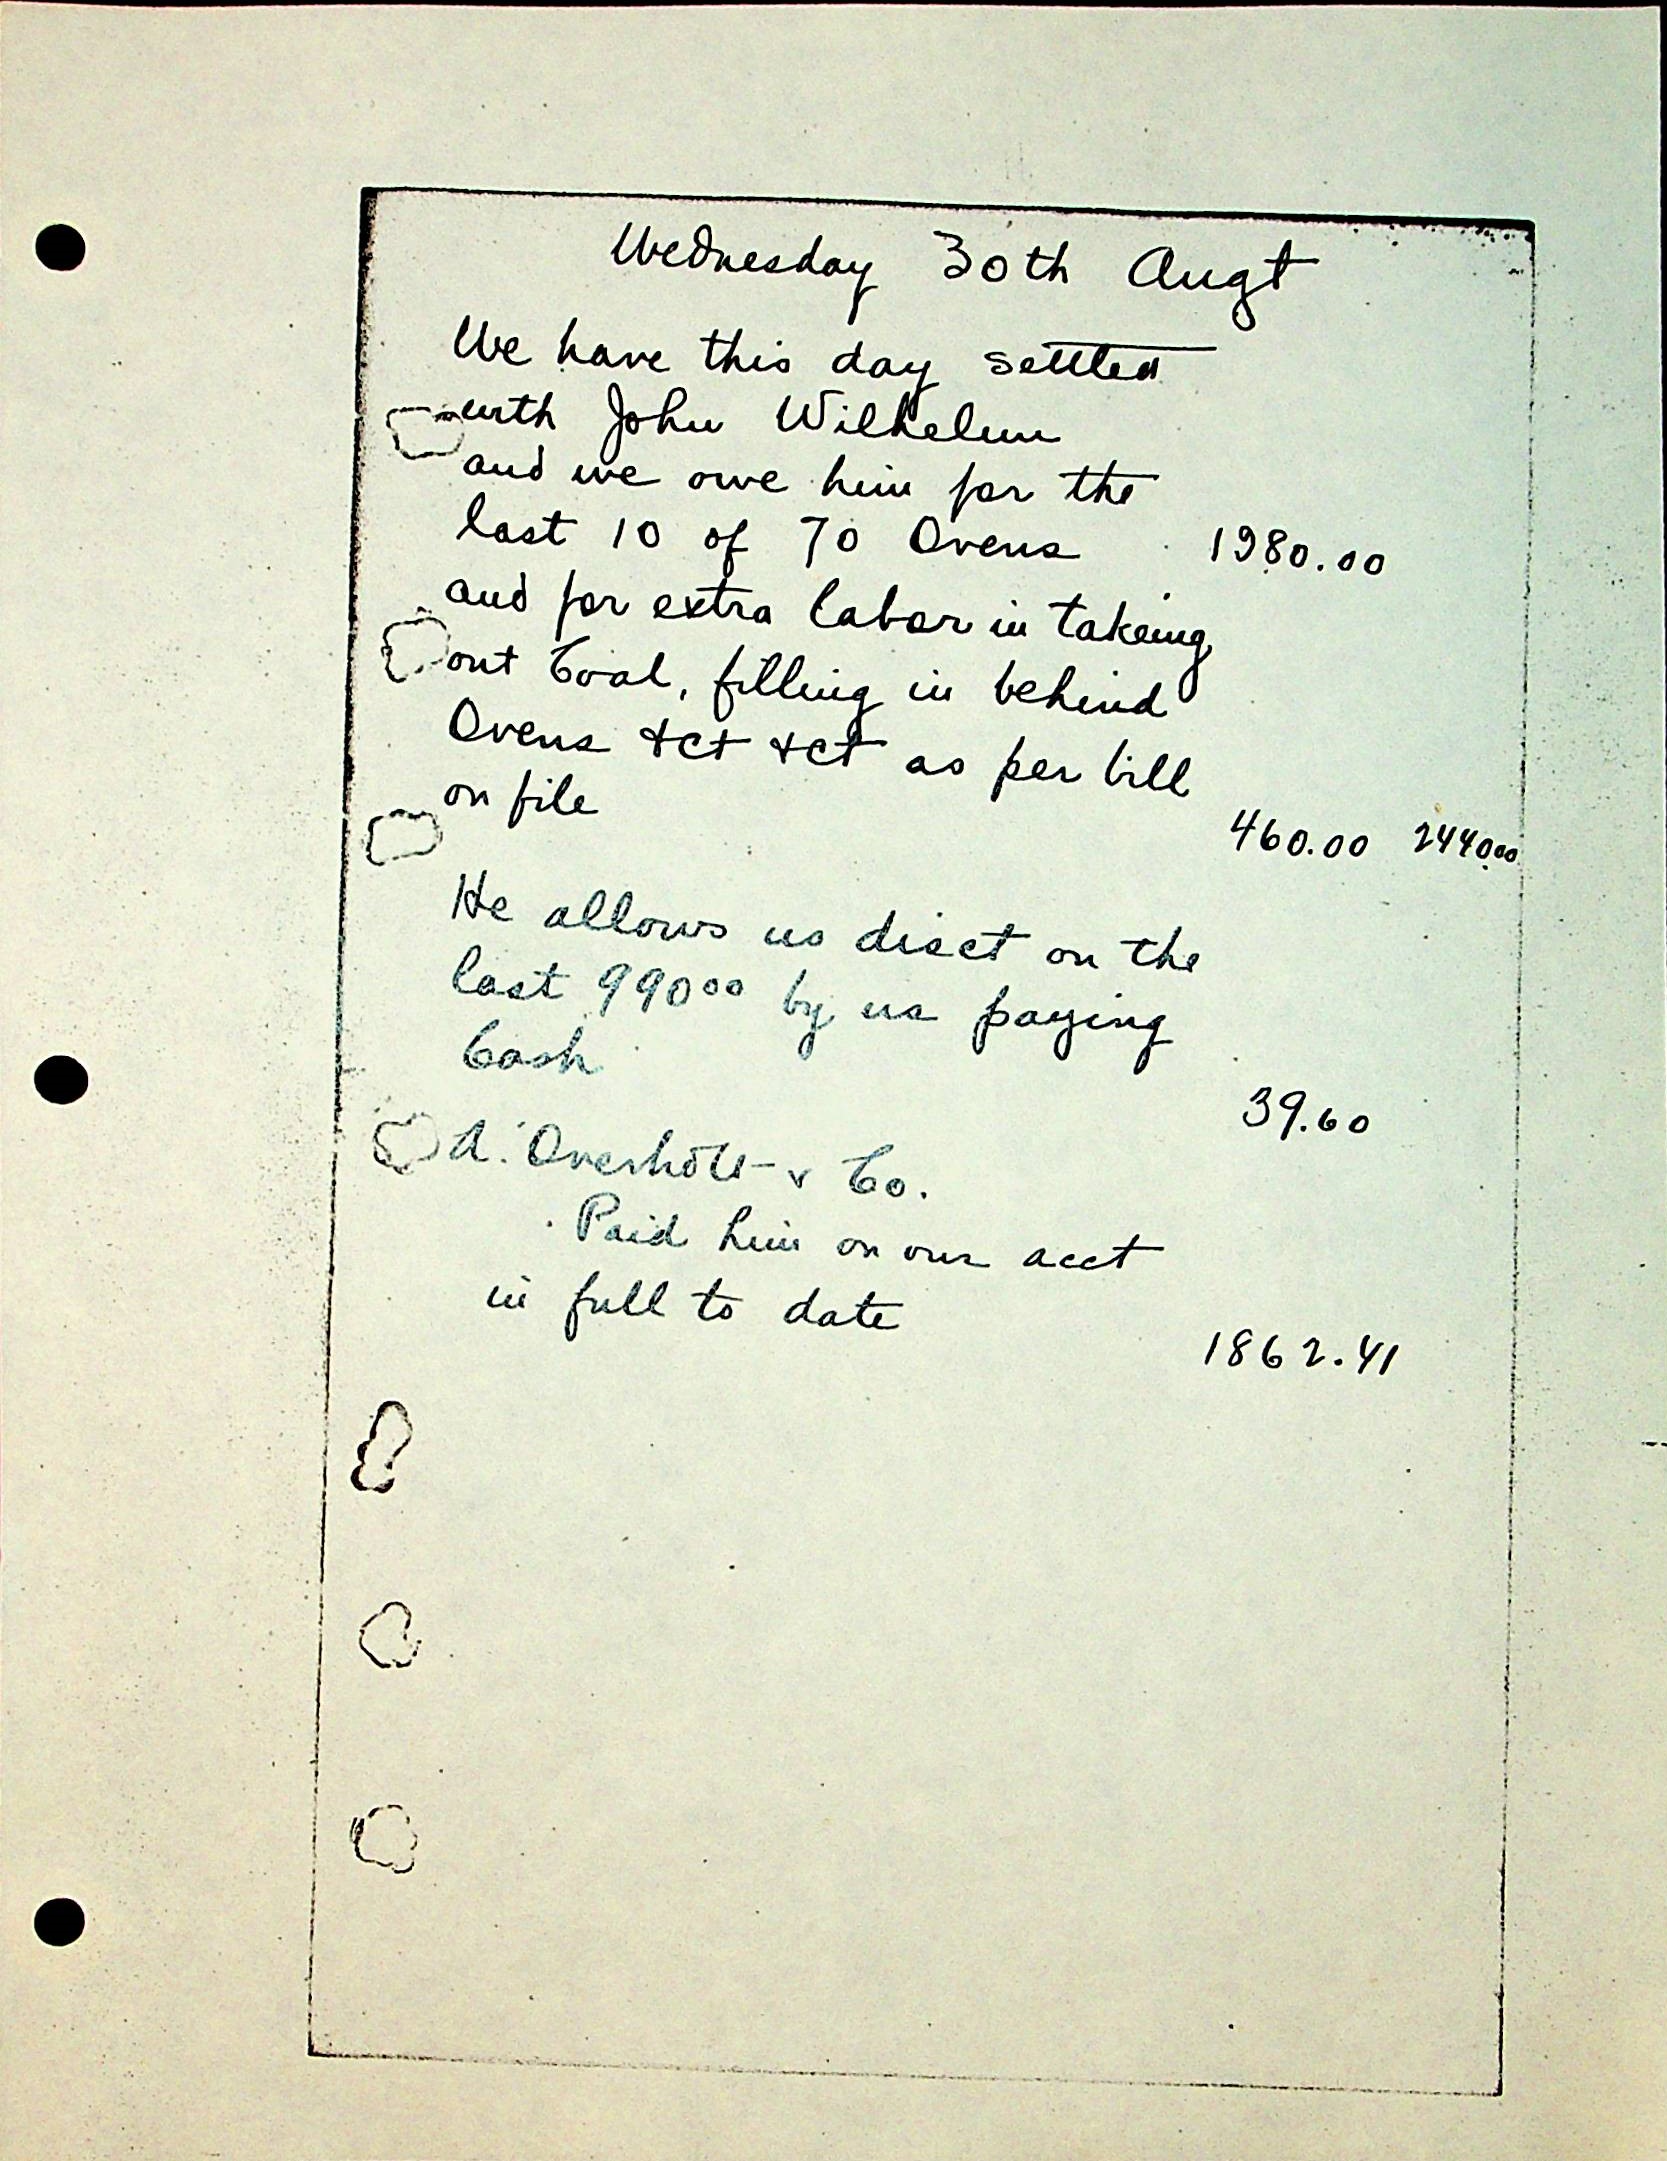 Wednesday 30th Augt
We have this day settled
with John Wilhelm
and we owe him for the
last 10 of 70 Ovens 1980.00
and for extra labor in takeing
out Coal, filling in behind
Ovens &ct &ct as per bill
on file
460.00 2440.00
He allows us disct on the
last 990.00 by us paying
Cash
39.60
A. Overholt & Co.
Paid him on our acct
in full to date
1862.41